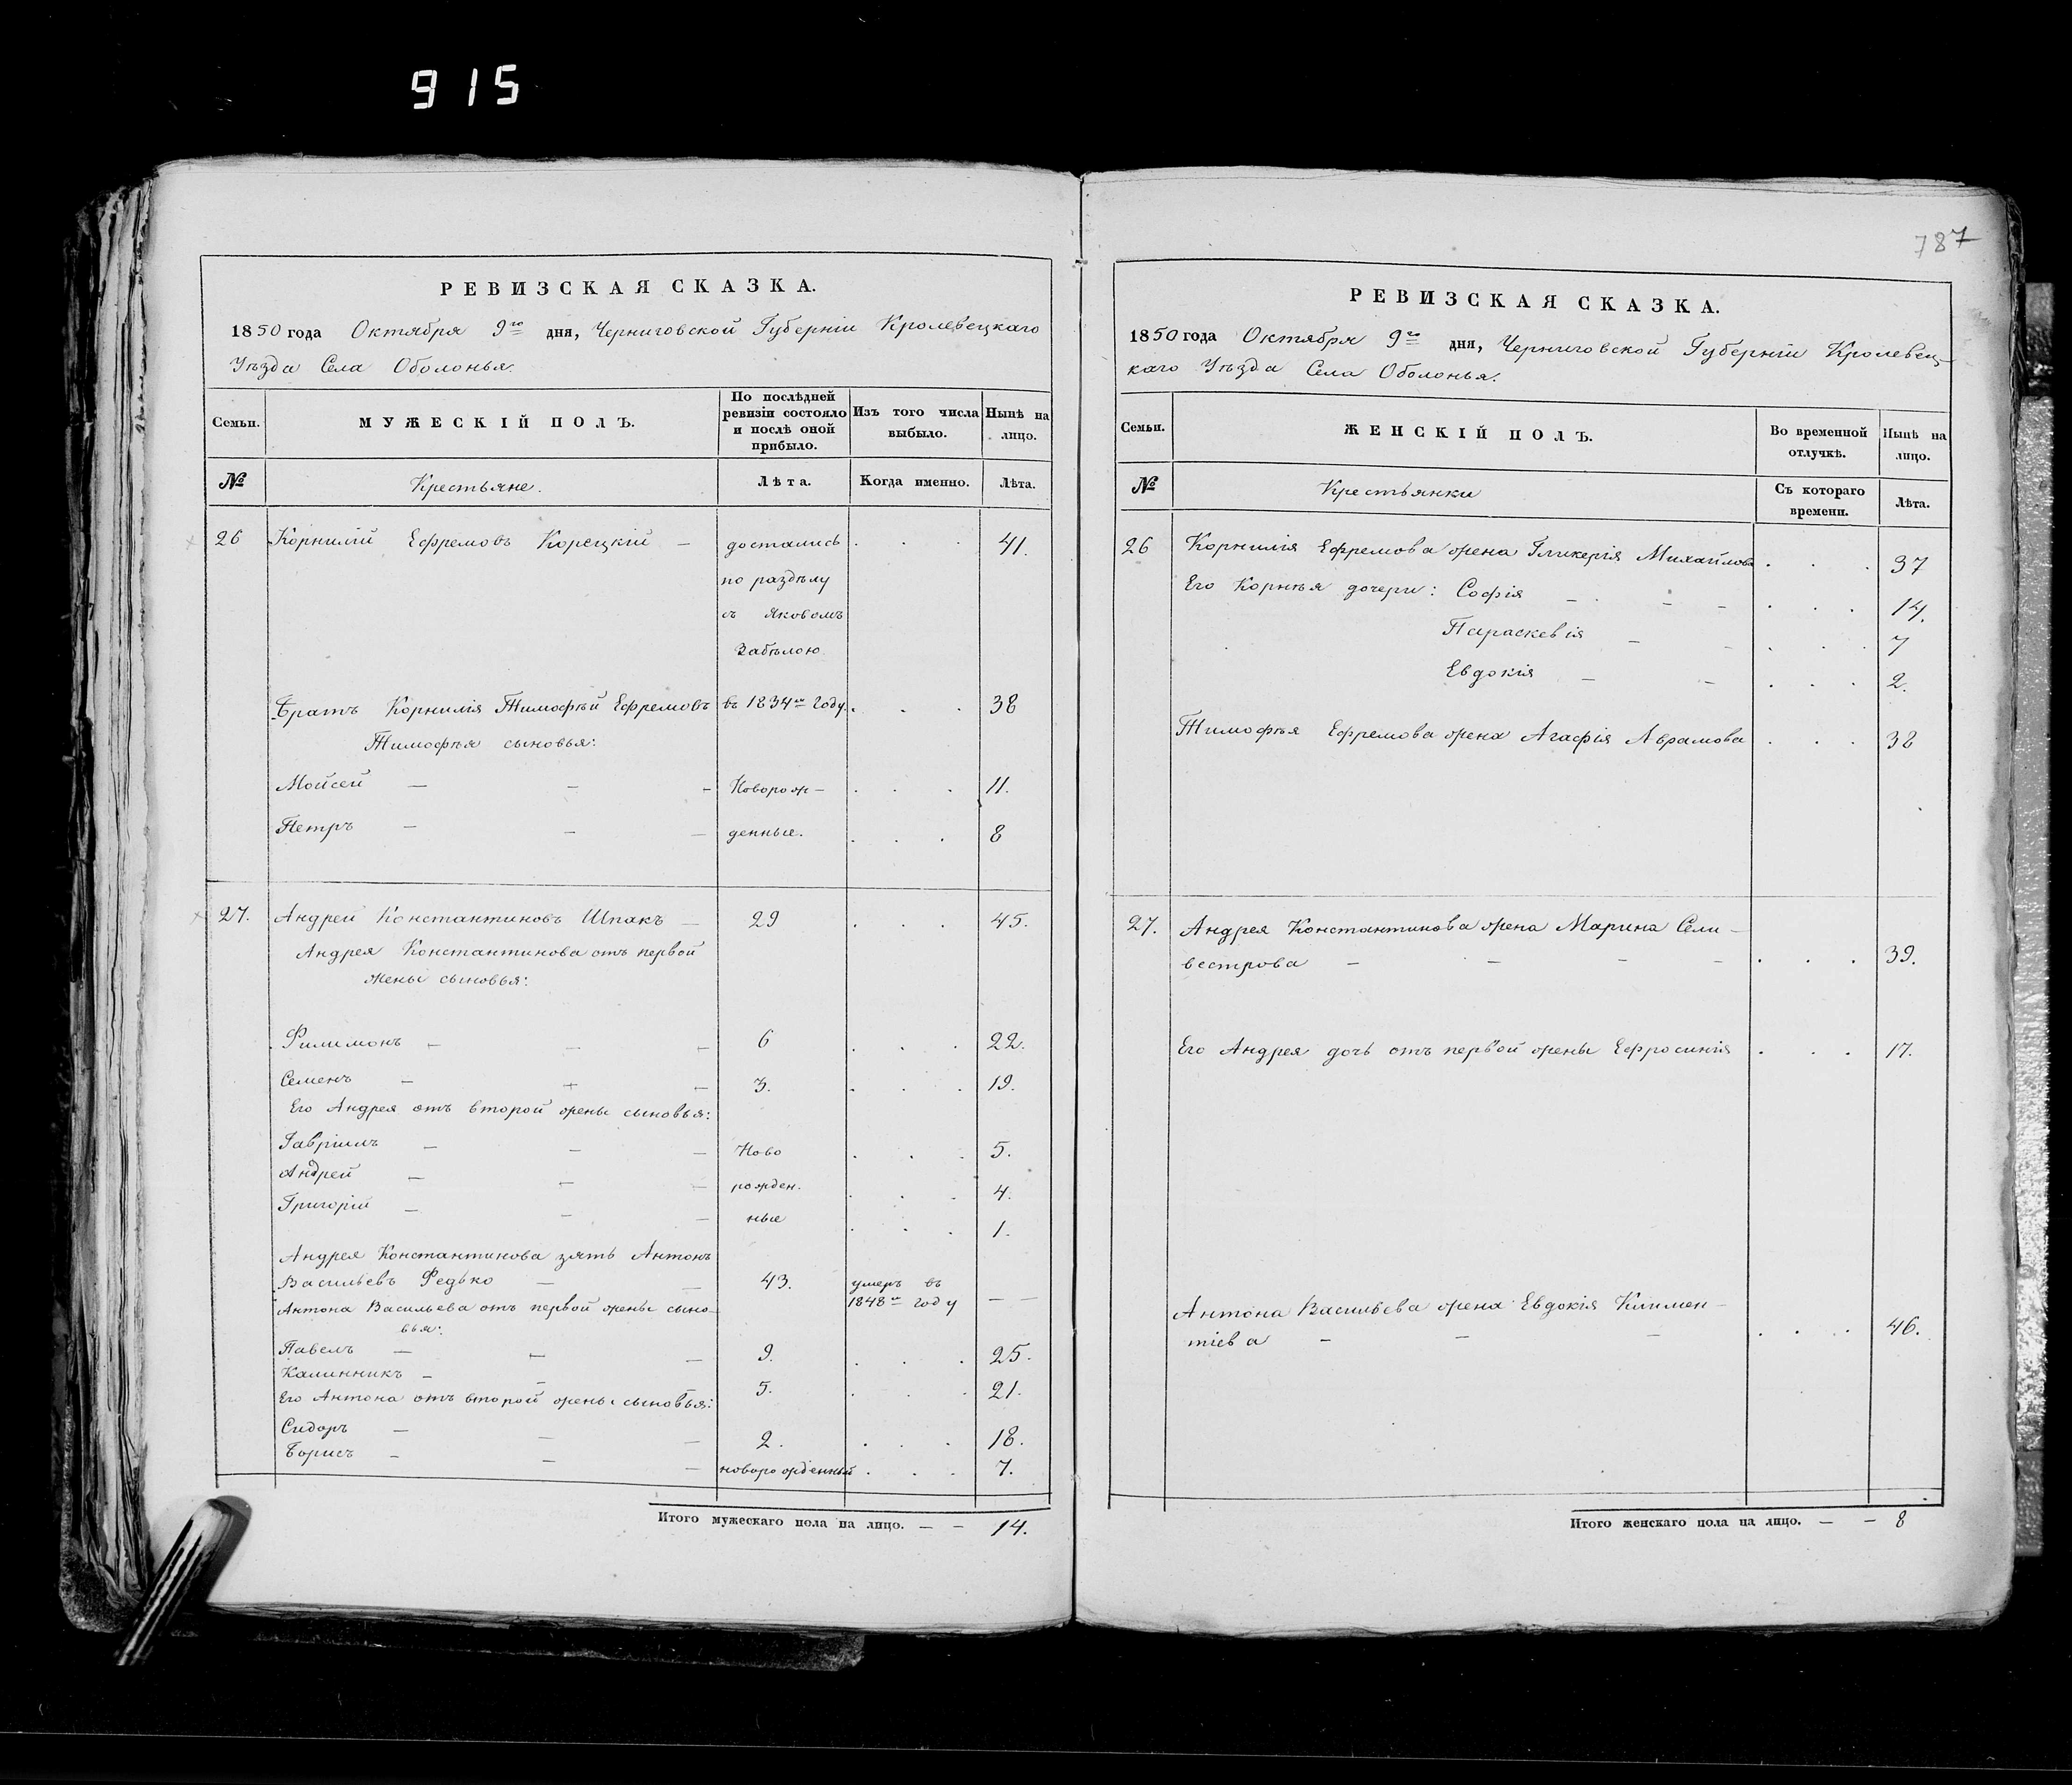 915
РЕВИЗСКАЯ СКАЗКА.
1850 года Октября 9го дня, Черниговской Губерніи Кролевецкаго
Уѣзда Села Оболонья.
Семьи.
МУЖЕСКІЙ ПОЛЪ.
По послѣдней
ревизіи состояло
и послѣ оной
прибыло.
Изъ того числа
выбыло.
Нынѣ на
лицо.
№ Крестьяне. Лѣта. Когда именно. Лѣта.
26 Корнилій Ефремовъ Корецкій — достались . . . 41.
по раздѣлу
съ Яковомъ
Забѣлою
Братъ Корнилія Тимофѣй Ефремовъ въ 1834мъ Году. . . . 38
Тимофѣя сыновья:
Мойсей — — — Наворож- . . . 11.
Петръ — — — денные. . . . 8
27. Андрей Константиновъ Шпакъ — 29 . . . 45.
Андрея Константинова отъ первой
жены сыновья:
Филимонъ — — — 6 . . . 22.
Семенъ — — — 3. . . . 19.
Его Андрея отъ второй жены сыновья:
Гавріилъ — — — Ново . . . 5.
Андрей — — — рожден. . . . 4.
Григорій — — — ные . . . 1.
Андрея Константинова зять Антонъ
Васильевъ Федько — — 43. умеръ въ
1848мъ году — —
Антона Васильева отъ первой жены сыно-
вья:
Павелъ — — — 9. . . . 25.
Калинникъ — — — 5. . . . 21.
Его Антона отъ второй жены сыновья:
Сидоръ — — — 2. . . . 18.
Борисъ — — — новорожденный . . . 7.
Итого мужескаго пола на лицо. — — 14.
787
РЕВИЗСКАЯ СКАЗКА.
1850 года Октября 9го дня, Черниговской Губерніи Кролевец-
каго Уѣзда Села Оболонья.
Семьи.
ЖЕНСКІЙ ПОЛЪ.
Во временной
отлучкѣ.
Нынѣ на
лицо.
№ Крестьянки
Съ котораго
времени.
Лѣта.
26 Корнилія Ефремова жена Гликерія Михайлова . . . 37
Его Корнѣя дочери: Софія — — — . . . 14.
Параскевія — — . . . 7
Евдокія — — . . . 2.
Тимофѣя Ефремова жена Агафія Аврамова . . . 38
27. Андрея Константинова жена Марина Сели-
вестрова — — — — . . . 39.
Его Андрея дочь отъ первой жены Ефросинія . . . 17.
Антона Васильева жена Евдокія Климен-
тіева — — — . . . 46.
Итого женскаго пола на лицо. — — 8